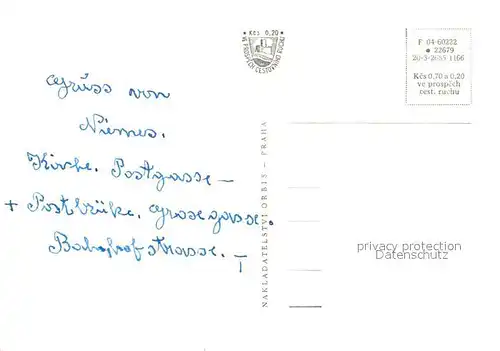 Kčs 0,70
VE PROSPĚCH CESTOVNÍHO RUCHU
F 04-60222
22679
20-3-2055 1166
Kčs 0,70 a 0,20
ve prospěch
cest. ruchu
Grüss von
Niemes.
Kirche, Postgasse –
+ Postbrüke, Grosegasse.
Bahnhofstrasse. –
NAKLADATELSTVÍ ORBIS – PRAHA
privacy protection
Datenschutz